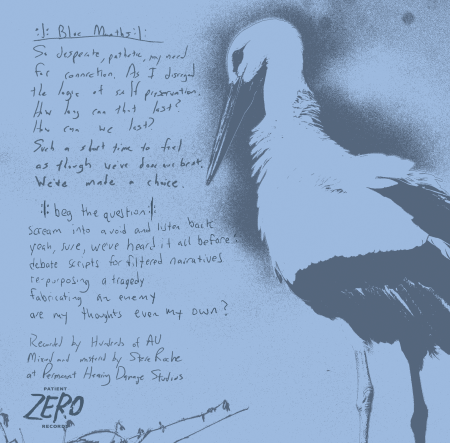 :|: Blue Mouths :|:
So desperate, pathetic, my need
for connection. As I disregard
the logic of self preservation.
How long can that last?
How can we last?
Such a short time to feel
as though we've done our best.
We've made a choice.
:|: beg the question :|:
scream into a void and listen back
yeah, sure, we've heard it all before.
debate scripts for filtered narratives
re-purposing a tragedy
fabricating an enemy
are my thoughts even my own?
Recorded by Hundreds of AU
Mixed and mastered by Steve Roche
at Permanent Hearing Damage Studios
PATIENT
ZERO
RECORDS